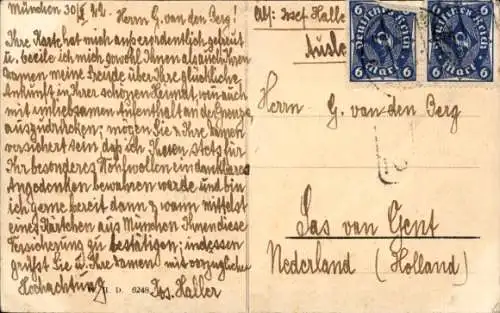 München 30/8. 22.
Herrn G. van den Berg!
Ihre Karte hat mich außerordentlich gefreut
u. beeile ich mich sowohl Ihnen als auch Ihren
Damen meine Freude über Ihre glückliche
Ankunft in Ihrer schönen Heimat, wenn auch
mit unliebsamen Aufenthalt an der Grenze,
auszudrücken; mögen Sie u. Ihre Damen
versichert sein daß ich Ihnen stets für
Ihr besonderes Wohlwollen ein dankbares
Angedenken bewahren werde und bin
ich gerne bereit dann & wann mittelst
eines Kärtchen aus München Ihnen diese
Versicherung zu bestätigen; indessen
grüßt Sie u. Ihre Damen mit vorzüglicher
Hochachtung Jos. Haller
H. D. 6248
Abs: Josef Haller
Ausla
Deutsches Reich
6 Mark 6
Deutsches Reich
6 Mark 6
Herrn G. van den Berg
Sas van Gent
Nederland (Holland)